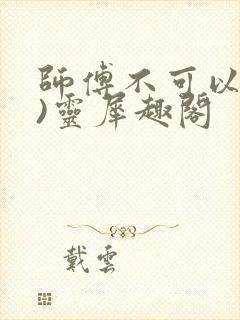 師傅不可以
)靈犀趣閣
戴雲